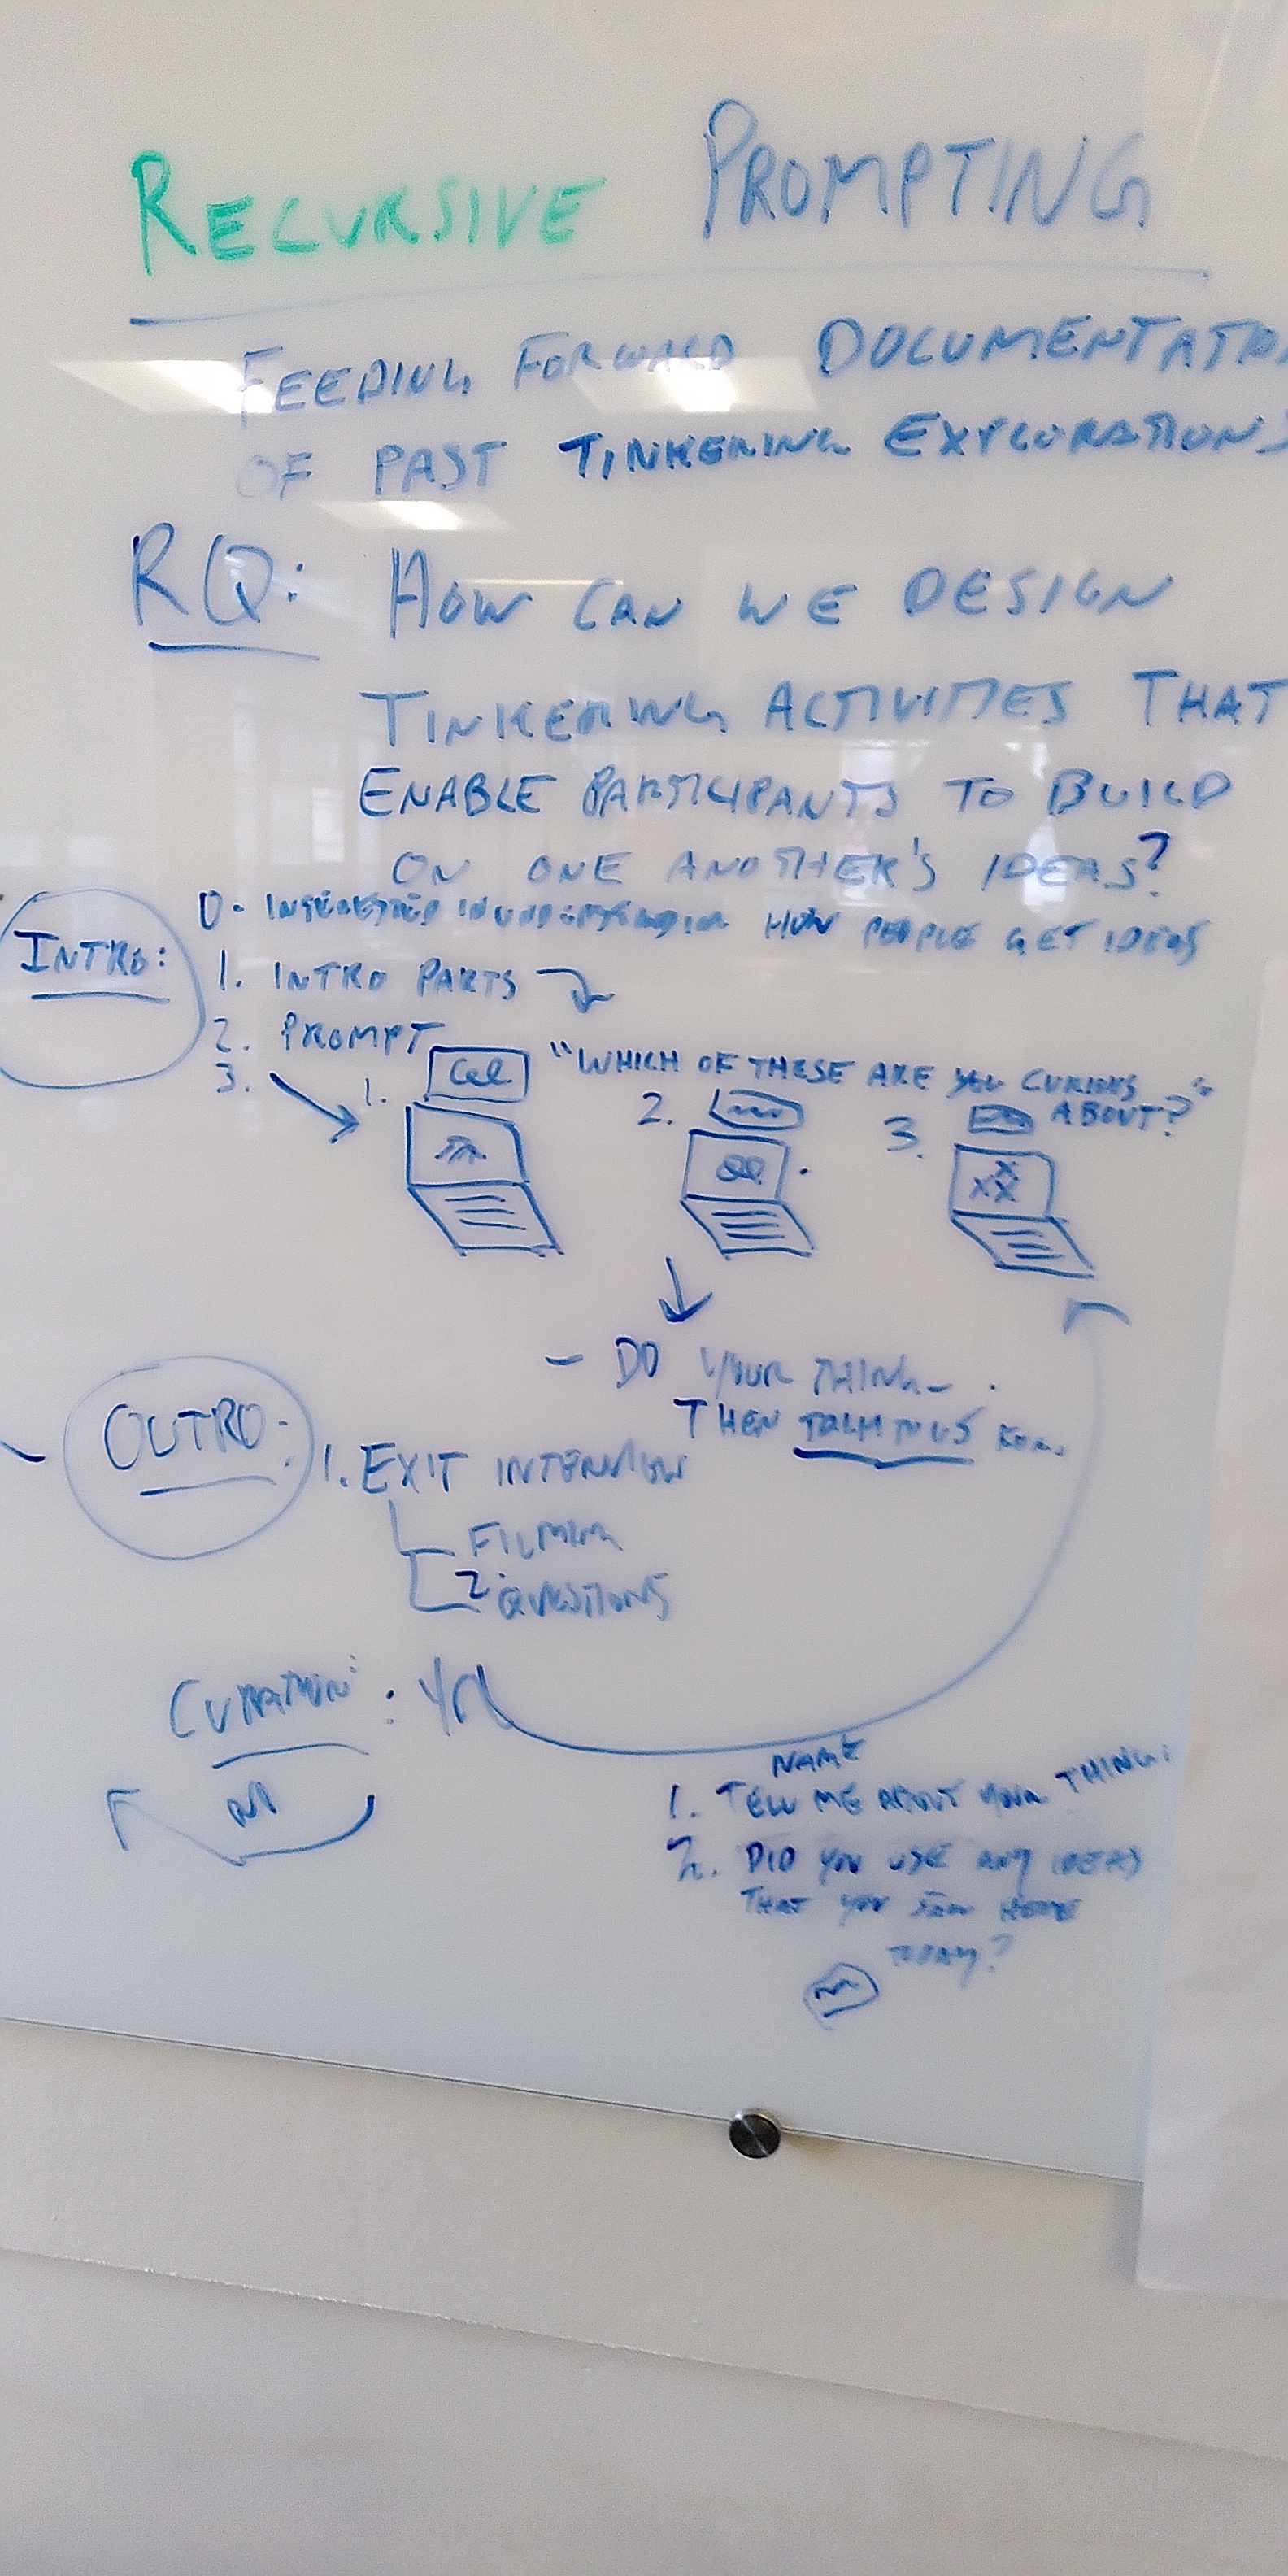 RECURSIVE PROMPTING
FEEDING FORWARD DOCUMENTATIO
OF PAST TINKERING EXPLORATIONS
RQ: HOW CAN WE DESIGN
TINKERING ACTIVITIES THAT
ENABLE PARTICIPANTS TO BUILD
ON ONE ANOTHER'S IDEAS?
INTRO:
0- INTERESTED IN UNDERSTANDING HOW PEOPLE GET IDEAS
1. INTRO PARTS
2. PROMPT
"WHICH OF THESE ARE YOU CURIOUS
ABOUT?"
3.
1.
2.
3.
XXX
- DO YOUR THING
THEN TALK TO US FOR
OUTRO:
1. EXIT INTERVIEW
FILMING
2 QUESTIONS
CURATION:
NAME
1. TELL ME ABOUT YOUR THING.
2. DID YOU USE ANY IDEAS
THAT YOU SAW HERE
TODAY?